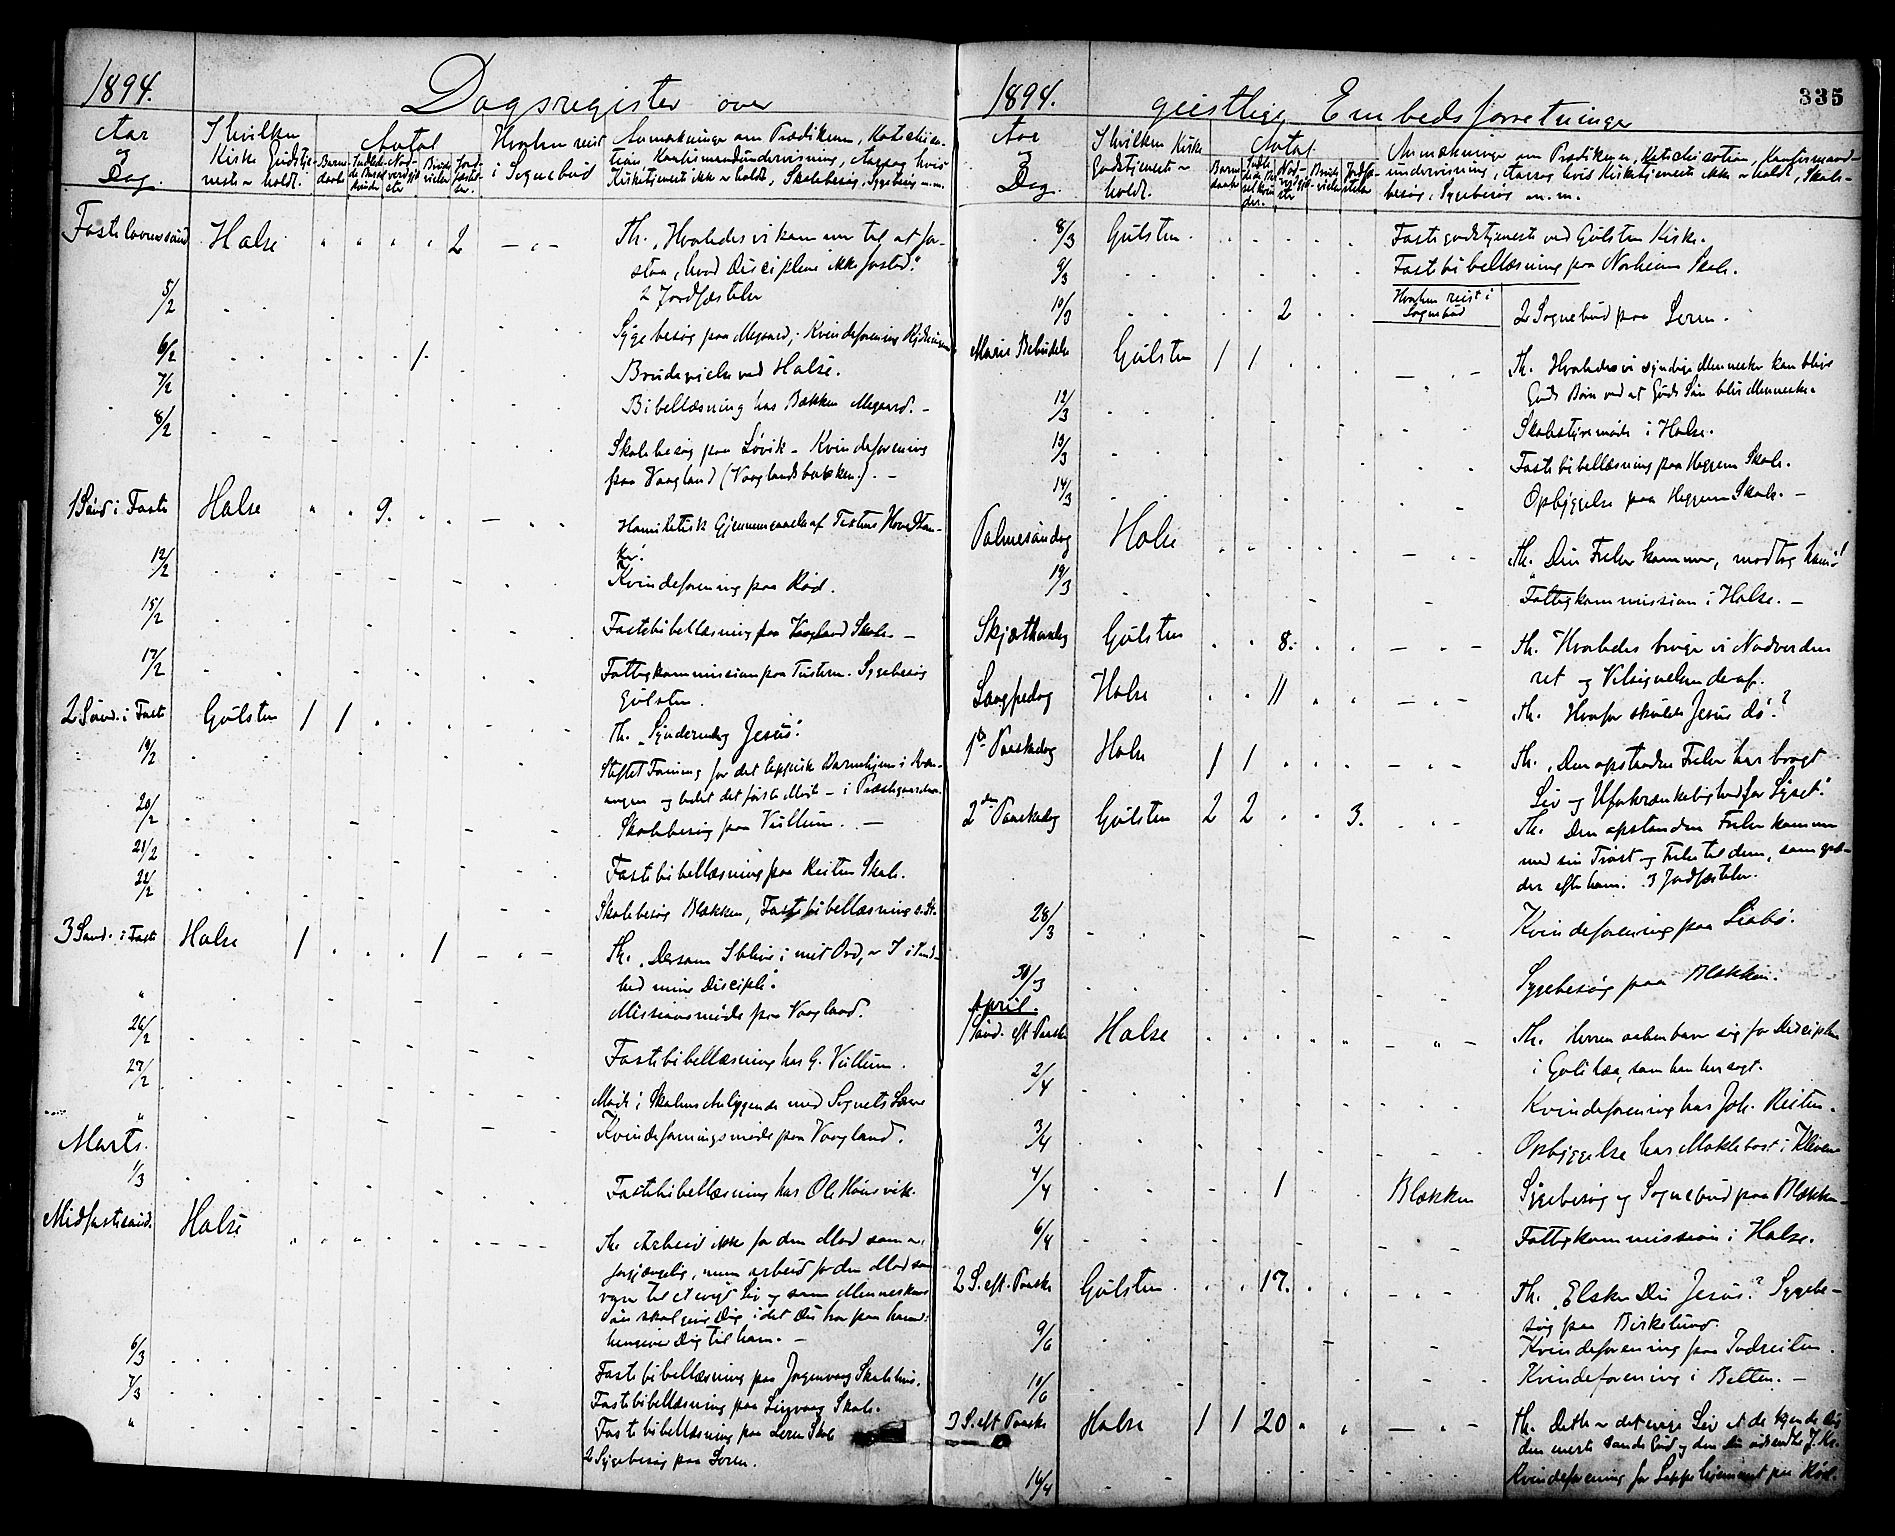 1894.
Dagsregister over
Aar
og
Dag.
I hvilken
Kirke Gudstje-
neste er holdt.
Antal
Hvorhen reist
i Sognebud
Anmærkninger om Prædikener, Katechisa-
tion, Konfirmandundervisning, Aarsag hvis
Kirketjeneste ikke er holdt, Skolebesøg, Sygebesøg m.m.
Fastelavnssønd Halse 2 Th. "Hvorledes vi kommer til at for-
staa, hvad Disciplene ikke forstod."
2 Jordfæstelser
5/2 Sygebesøg paa Megaard; Kvindeforening
6/2 1 Brudevielse ved Halse.
7/2 Bibellæsning hos Bækken Megaard.
8/2 Skolebesøg paa Løvik - Kvindeforening
paa Vaagland (Vaaglandsbakken). -
1 Sønd i Faste Halse 9. Homiletisk Gjennemgaaelse af Textens Hovedtan-
ker.
12/2 Kvindeforening paa Rød.
15/2 Fastebibellæsning paa Vaagland Skole. -
17/2 Fattigkommission paa Tustern. Sygebesøg
Gulsten.
2 Sønd. i Faste Gulsten 1 1 Th. "Synderen og Jesus".
19/2 Stiftet Forening for det lappiske Barnehjem i
og ledet det første Møde - i Præstegaarden.
20/2 Skolebesøg paa Vullum. -
21/2 Fastebibellæsning paa Reiten Skole.
22/2 Skolebesøg Blekken, Fastebibellæsning s. St.
3 Sønd. i Faste Halse 1 1 Th. "Dersom I blive i mit Ord, er I i Sand-
hed mine Disciple."
" Missionsmøde paa Vaagland.
26/2 Fastebibellæsning hos G. Vullum.
27/2 Møde i Skolens Anliggende med Sognets Lærere
" Kvindeforeningsmøde paa Vaagland.
Marts.
1/3 Fastebibellæsning hos Ole Hønsvik.
Midfastesønd. Halse Th. Arbeid ikke for den Mad som er
forgjængelig, men arbeid for den Mad som
varer til et evigt Liv og som Menneskens
Søn skal give Dig i det Du tror paa ham &
hengiver Dig til ham. -
6/3 Fastebibellæsning paa Jørgenvaag Skolehus.
7/3 Fastebibellæsning paa Skole.
" Fastebibellæsning paa Leren Skole
2 Sygebesøg paa Leren.
1894.
geistlige Embedsforretninger
335
Aar
og
Dag.
I hvilken Kirke
Gudstjeneste er
holdt.
Antal
Anmærkninger om Prædikener, Katechisation, Konfirmand-
undervisning, Aarsag hvis Kirketjeneste ikke er holdt, Skole-
besøg, Sygebesøg m.m.
8/3 Gulsten. Fastegudstjeneste ved Gulsten Kirke.
9/3 Fastebibellæsning paa Nordheim Skole.
Hvorhen reist i
Sognebud
10/3 2 2 Sognebud paa Leren.
Mariæ Bebudelse Gulsten 1 1 Th. Hvorledes vi syndige Mennesker kan blive
Guds Børn ved at Guds Søn blev Menneske.
12/3 Skolestyremøde i Halse.
13/3 Fastebibellæsning paa Heggem Skole.
14/3 Opbyggelse paa Heggem Skole. -
Palmesøndag Halse Th. "Din Frelser kommer, modtag ham!"
19/3 Fattigkommission i Halse. -
Skjærthorsdag Gulsten 8. Th. Hvorledes bruge vi Nadverden
ret og Velsignelsen deraf.
Langfredag Halse 11 Th. Hvorfor skulde Jesus dø?
1ste Paaskedag Halse 1 1 Th. "Den opstandne Frelser har bragt
Liv og Uforkrænkelighed for Lyset."
2den Paaskedag Gulsten 2 2 3. Th. Den opstandne Frelser kommer
med sin Trøst og Frelse til dem, som græ-
der efter ham. 3 Jordfæstelser.
28/3 Kvindeforening paa Liabø.
30/3 Sygebesøg paa Blekken.
April.
1 Sønd. eft. Paaske Halse Th. Herren aabenbarer sig for Disciplene
i Galilæa, som han har sagt.
2/4 Kvindeforening hos Joh. Reiten.
3/4 Opbyggelse hos i Kleven
4/4 1 Blekken Sygebesøg og Sognebud paa Blekken
6/4 Fattigkommission i Halse.
2 S. eft. Paaske Gulsten 17. Th. "Elsker Du Jesus?" Sygebe-
søg paa Birkelund.
9/6 Kvindeforening paa Indreiten.
10/6 Kvindeforening i Betten. -
3 S. eft. Paaske Halse 1 1 20 Th. Dette er det evige Liv at de kjende Dig
den eneste sande Gud og den Du udsendte J. Kr.
14/4 Kvindeforening for Lappehjemmet paa Rød.